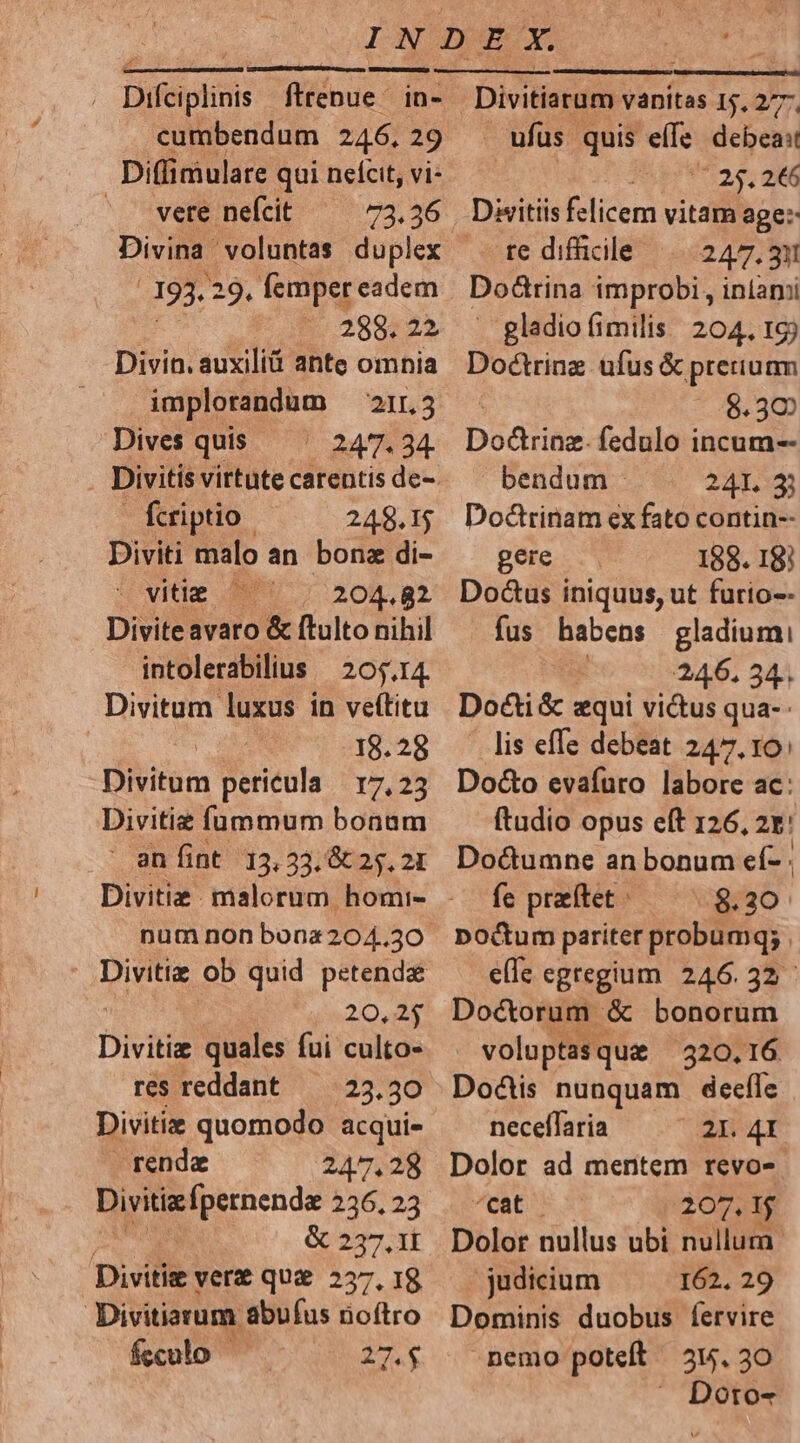 INDEX.
Difciplinis ftrenue in-
cumbendum 246, 29
Diffimulare qui nefcit, vi-
vere nefcit 73.36
Divina voluntas duplex
193. 29. femper eadem
288. 22
Divin. auxiliū ante omnia
implorandum 211,3
Dives quis 247.34
Divitis virtute carentis de-
fcriptio 248.15
Diviti malo an bonæ di-
vitiæ 204.82
Divite avaro & ftulto nihil
intolerabilius 205,14
Divitum luxus in veftitu
18.28
Divitum pericula 17,23
Divitiæ fummum bonum
an fint 13,33. & 25, 21
Divitiæ malorum homi-
num non bonæ 204.30
Divitiæ ob quid petendæ
20, 25
Divitiæ quales fui culto-
res reddant 23.30
Divitiæ quomodo acqui-
rendæ 247.28
Divitiæ fpernendæ 236, 23
& 237.11
Divitiæ veræ quæ 237. 18
Divitiarum abufus noftro
feculo 27.5
Divitiarum vanitas 15. 277.
ufus quis effe debeat
25. 266
Divitiis felicem vitam age-
re difficile 247.31
Doctrina improbi, infani
gladio fimilis 204, 19
Doctrinæ ufus & pretium
8.30
Doctrinæ fedulo incum-
bendum 241. 3
Doctrinam ex fato contin-
gere 188. 18
Doctus iniquus, ut furio-
fus habens gladium
246. 34.
Docti & æqui victus qua-
lis effe debeat 247. 10
Docto evafuro labore ac
ftudio opus eft 126, 21
Doctumne an bonum ef-
fe præftet 8.30
Doctum pariter probumq;
effe egregium 246. 32
Doctorum & bonorum
voluptas quæ 320. 16
Doctis nunquam deeffe
neceffaria 21. 41
Dolor ad mentem revo-
cat 207. 15
Dolor nullus ubi nullum
judicium 162. 29
Dominis duobus fervire
nemo poteft 315. 30
Doro-